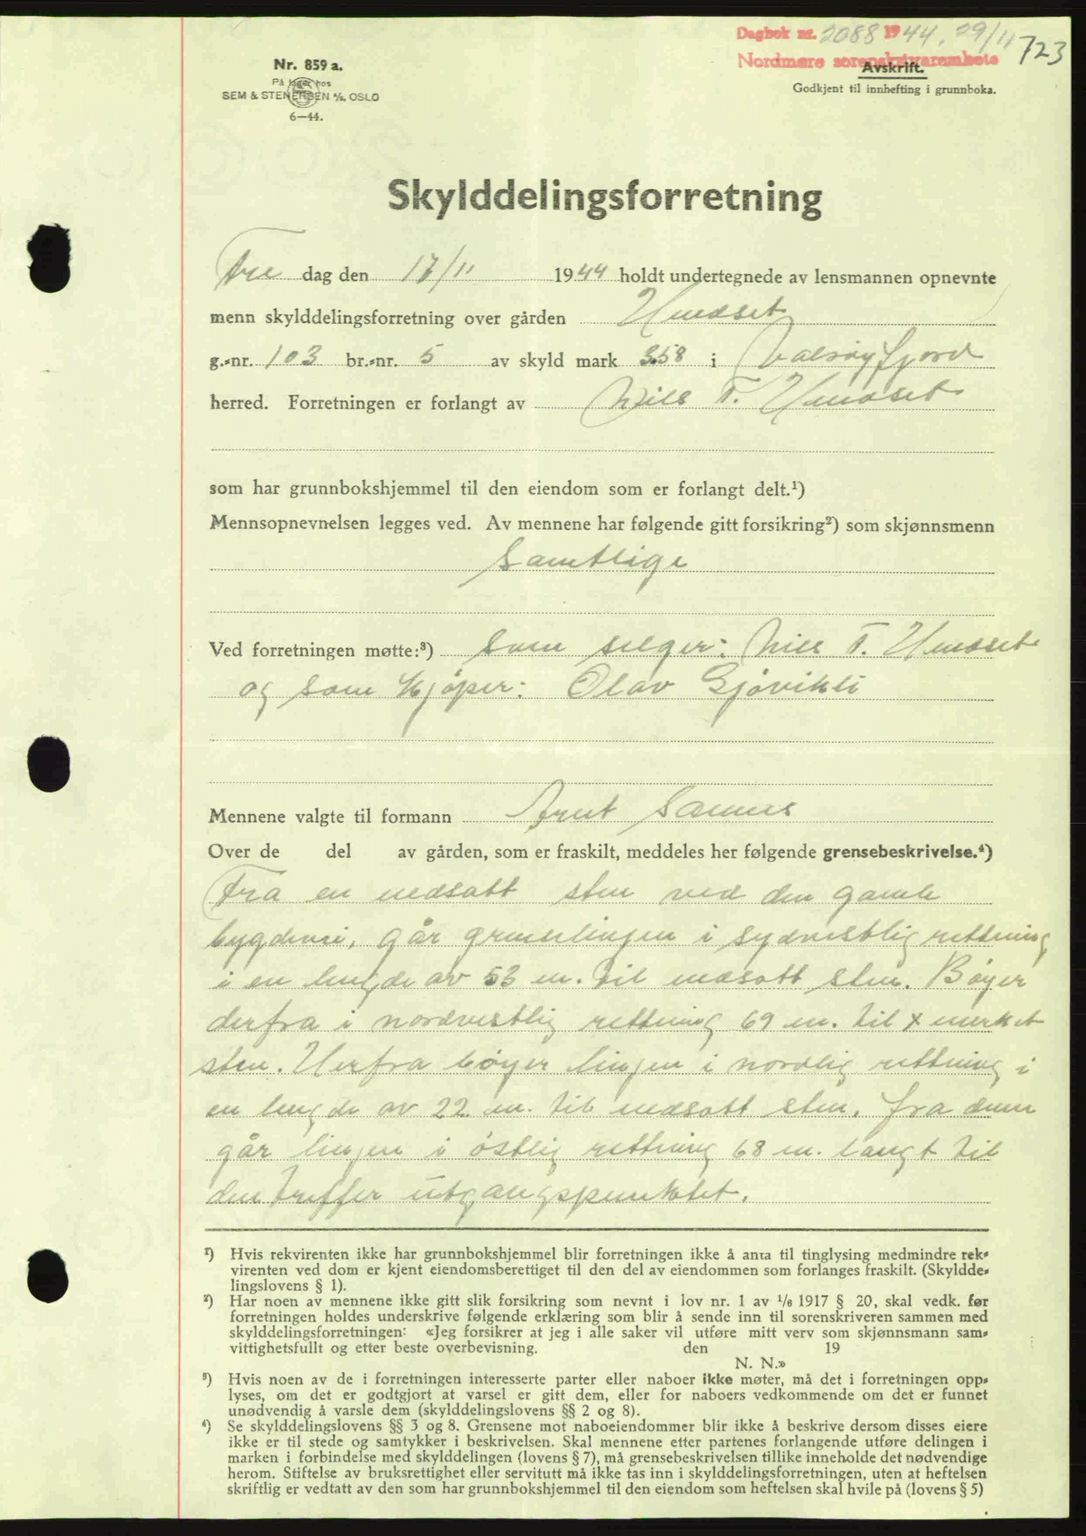 Dagbok nr. 2088 1944. 29/11 723
Nordmøre sorenskriverembete
Nr. 859 a.
På lager hos
SEM & STENERSEN A/S, OSLO
6—44.
Avskrift.
Godkjent til innhefting i grunnboka.
Skylddelingsforretning
Fre dag den 17/11 1944 holdt undertegnede av lensmannen opnevnte
menn skylddelingsforretning over gården Hendset
g.-nr. 103 br.-nr. 5 av skyld mark 3.58 i Valsøyfjord
herred. Forretningen er forlangt av Nils T. Hendset
som har grunnbokshjemmel til den eiendom som er forlangt delt.¹)
Mennsopnevnelsen legges ved. Av mennene har følgende gitt forsikring²) som skjønnsmenn
Samtlige
Ved forretningen møtte:³) Som selger: Nils T. Hendset
og som Kjøper: Olav Gjøvikli
Mennene valgte til formann Arnt
Over de del av gården, som er fraskilt, meddeles her følgende grensebeskrivelse.⁴)
Fra en nedsatt sten ved den gamle
bygdevei, går grenselinjen i sydvestlig rettning
i en lengde av 53 m. til nedsatt sten. Bøyer
derfra i nordvestlig rettning 69 m. til x merket
sten. Herfra bøyer linjen i nordlig rettning i
en lengde av 22 m. til nedsatt sten. fra denne
går linjen i østlig rettning 68 m. langt til
den treffer utgangspunktet.
¹) Hvis rekvirenten ikke har grunnbokshjemmel blir forretningen ikke å anta til tinglysing medmindre rek-
virenten ved dom er kjent eiendomsberettiget til den del av eiendommen som forlanges fraskilt. (Skyldde-
lingslovens § 1).
²) Har noen av mennene ikke gitt slik forsikring som nevnt i lov nr. 1 av 1/6 1917 § 20, skal vedk. før
forretningen holdes underskrive følgende erklæring som blir å sende inn til sorenskriveren sammen med
skylddelingsforretningen: «Jeg forsikrer at jeg i alle saker vil utføre mitt verv som skjønnsmann sam-
vittighetsfullt og etter beste overbevisning. den 19
N. N.»
³) Hvis noen av de i forretningen interesserte parter eller naboer ikke møter, må det i forretningen opp-
lyses, om det er godtgjort at varsel er gitt dem, eller for naboers vedkommende om det er funnet
unødvendig å varsle dem (skylddelingslovens §§ 2 og 8).
⁴) Se skylddelingslovens §§ 3 og 8. Grensene mot naboeiendommer blir ikke å beskrive dersom disses eiere
ikke er til stede og samtykker i beskrivelsen. Skal mennene etter partenes forlangende utføre delingen i
marken i forbindelse med skylddelingen (lovens § 7), må grensebeskrivelsen tillike inneholde det nødvendige
herom. Stiftelse av bruksrettighet eller servitutt må ikke tas inn i skylddelingsforretningen, uten at heftelsen
skriftlig er vedtatt av den som har grunnbokshjemmel til den eiendom som heftelsen skal hvile på (lovens § 5)